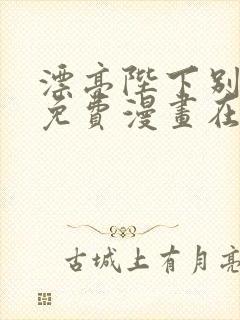 漂亮陛下别
免費漫畫在
古城上有月亮